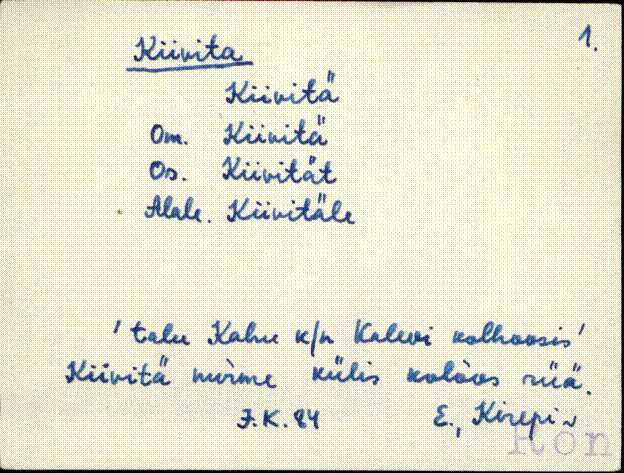 1.
Kiivita
Kiivitä
Om. Kiivitä
Os. Kiivität
Alale. Kiivitäle
' talu Kahu k/n Kalevi kolhoosis'
Kiivitä külis rüä.
J.K. 84 E., Kirepi
Rõn